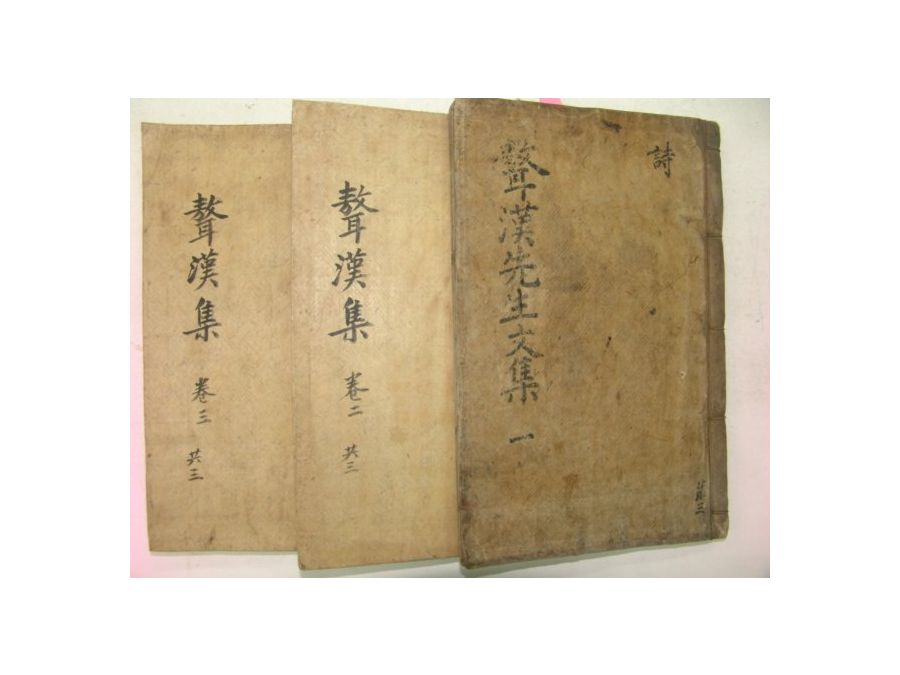 詩
聱漢先生文集 一
聱漢集 卷二
共三
聱漢集 卷三
共三